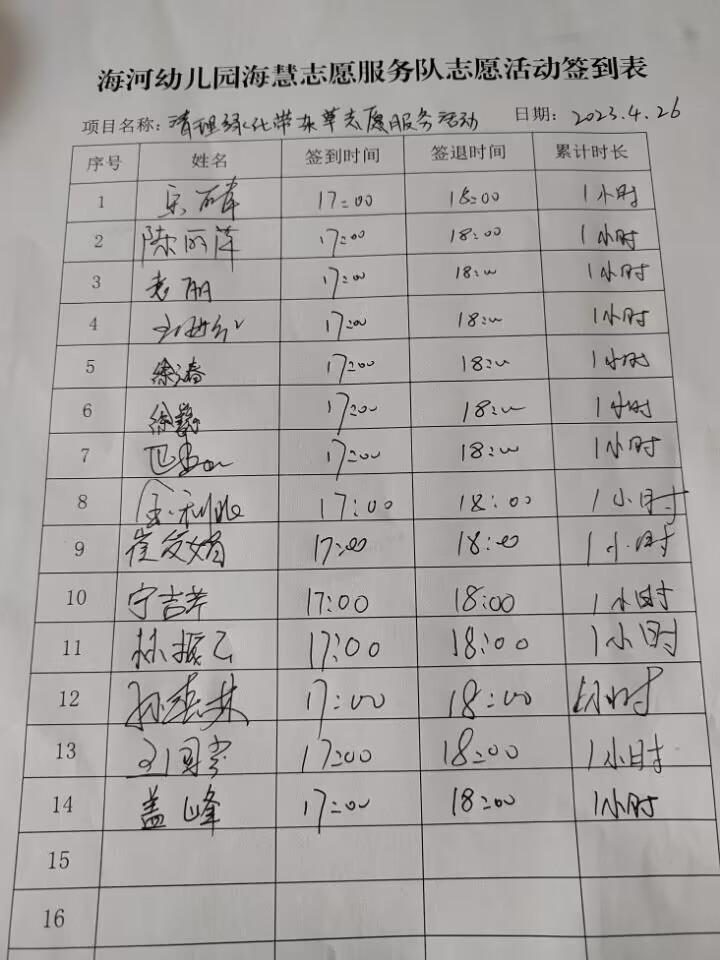 海河幼儿园海慧志愿服务队志愿活动签到表
项目名称: 清理绿化带杂草志愿服务活动 日期: 2023.4.26
序号 姓名 签到时间 签退时间 累计时长
1 17:00 18:00 1小时
2 陈丽萍 17:00 18:00 1小时
3 17:00 18:00 1小时
4 17:00 18:00 1小时
5 徐海春 17:00 18:00 1小时
6 17:00 18:00 1小时
7 17:00 18:00 1小时
8 17:00 18:00 1小时
9 17:00 18:00 1小时
10 宁吉芹 17:00 18:00 1小时
11 林振乙 17:00 18:00 1小时
12 17:00 18:00 1小时
13 17:00 18:00 1小时
14 盖峰 17:00 18:00 1小时
15
16